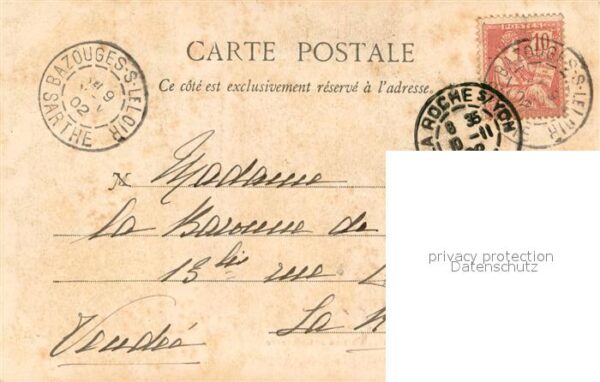 CARTE POSTALE
Ce côté est exclusivement réservé à l'adresse.
BAZOUGES-S-LE LOIR
9
02
SARTHE
10
BAZOUGES-S-LE LOIR
LA ROCHE S/YON
8 35
10 -11
02
Madame
la Baronne de
13 bis rue
La
Vendée
privacy protection
Datenschutz